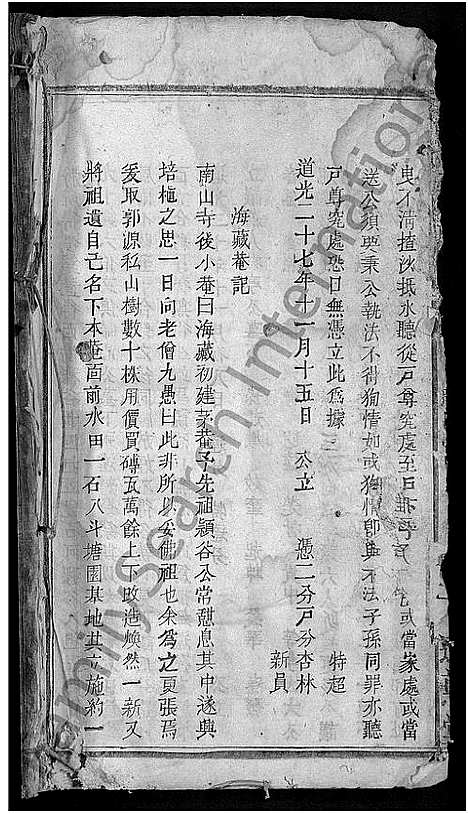 曳不清揸沙抵水聽從戶尊究處至日非呼 或當家處或當
送公須要秉公執法不得狥情如或狥情卽與不法子孫同罪亦聽
戶尊究處恐口無憑立此爲據三
特超
道光二十七年十一月十五日 公立 憑二分戶分杏林
新員
海藏菴記
南山寺後小菴曰海藏初建茅菴予先祖潁谷公常憇息其中遂興
培植之思一日向老僧九愚曰此非所以妥佛祖也余爲之更張焉
爰取郭源私山樹數十株用價買磚五萬餘上下改造煥然一新又
將祖遺自己名下本菴面前水田一石八斗塘園基地其立施約一
FamilySearch International